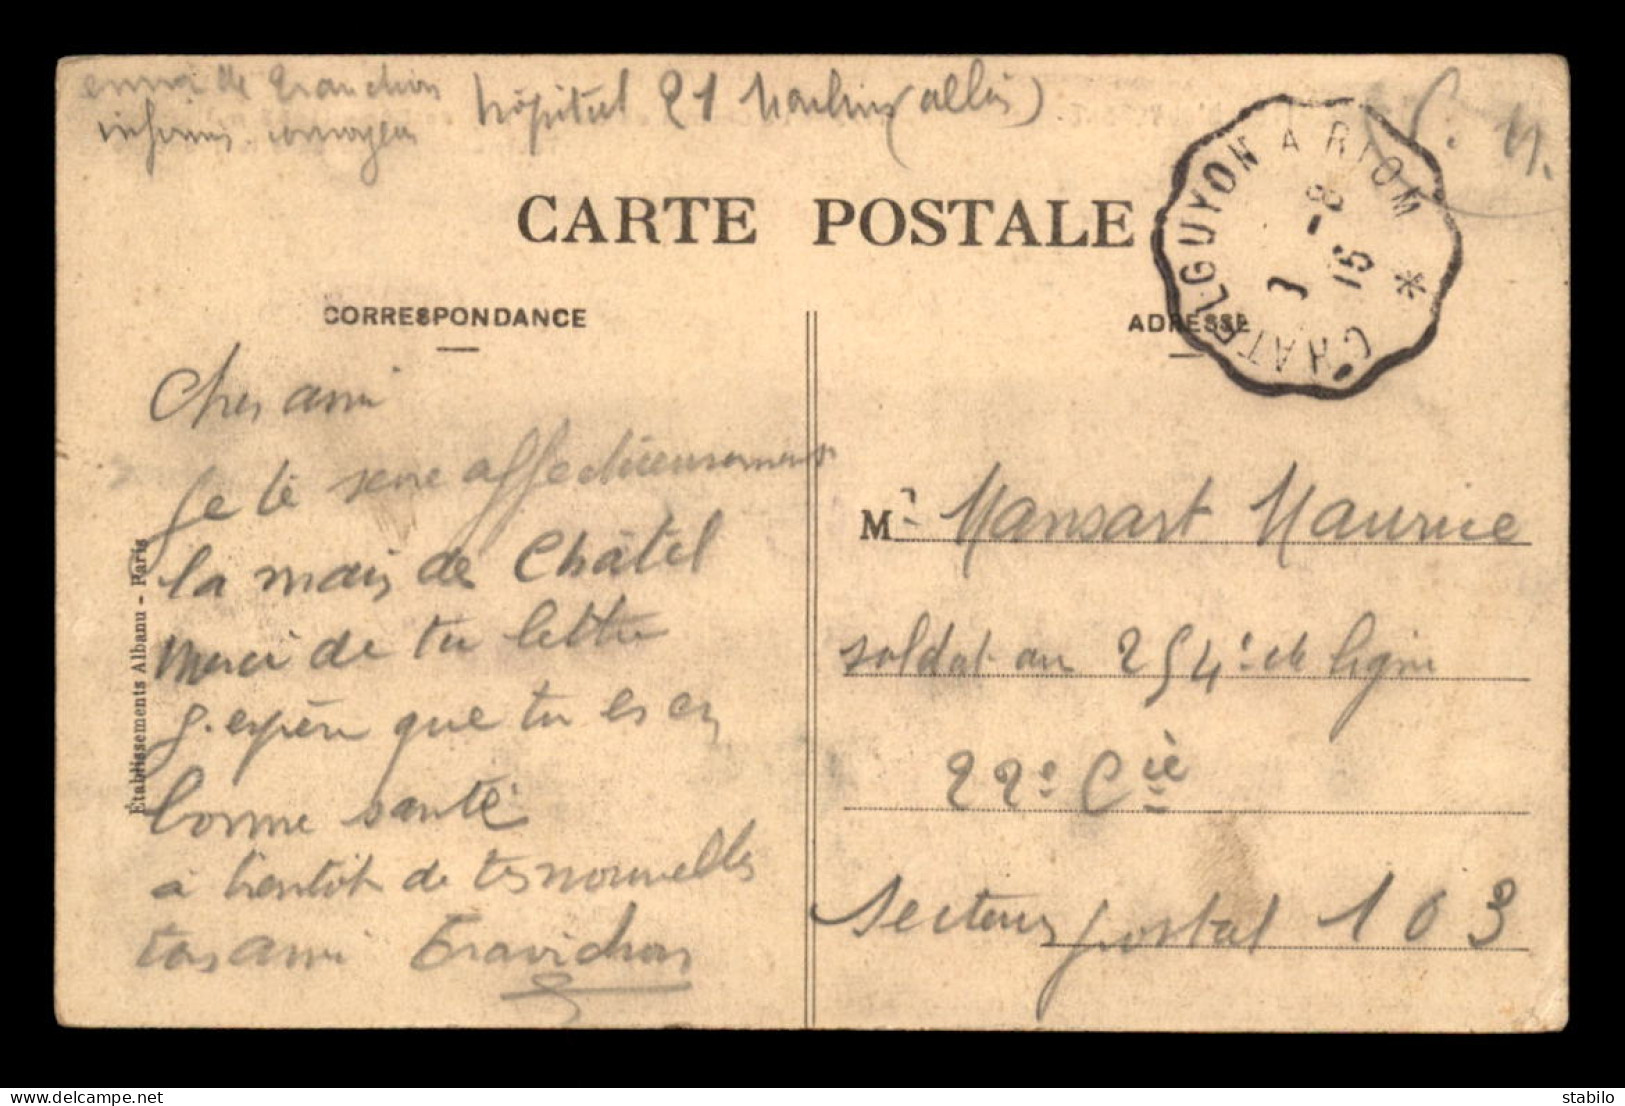 envoi de
infirmier
hôpital 21 Moulins (allier)
S. M.
CHATELGUYON A RIOM *
7 -8
16
CARTE POSTALE
CORRESPONDANCE
ADRESSE
Cher ami
Je te serre affectueusement
la main de Châtel
merci de ta lettre
j'espère que tu es en
bonne santé
à bientôt de tes nouvelles
ton ami
Établissements Albanu - Paris
Mr Mansart Maurice
soldat au 254e de ligne
22e Cie
Secteur postal 103
stabilo delcampe.net